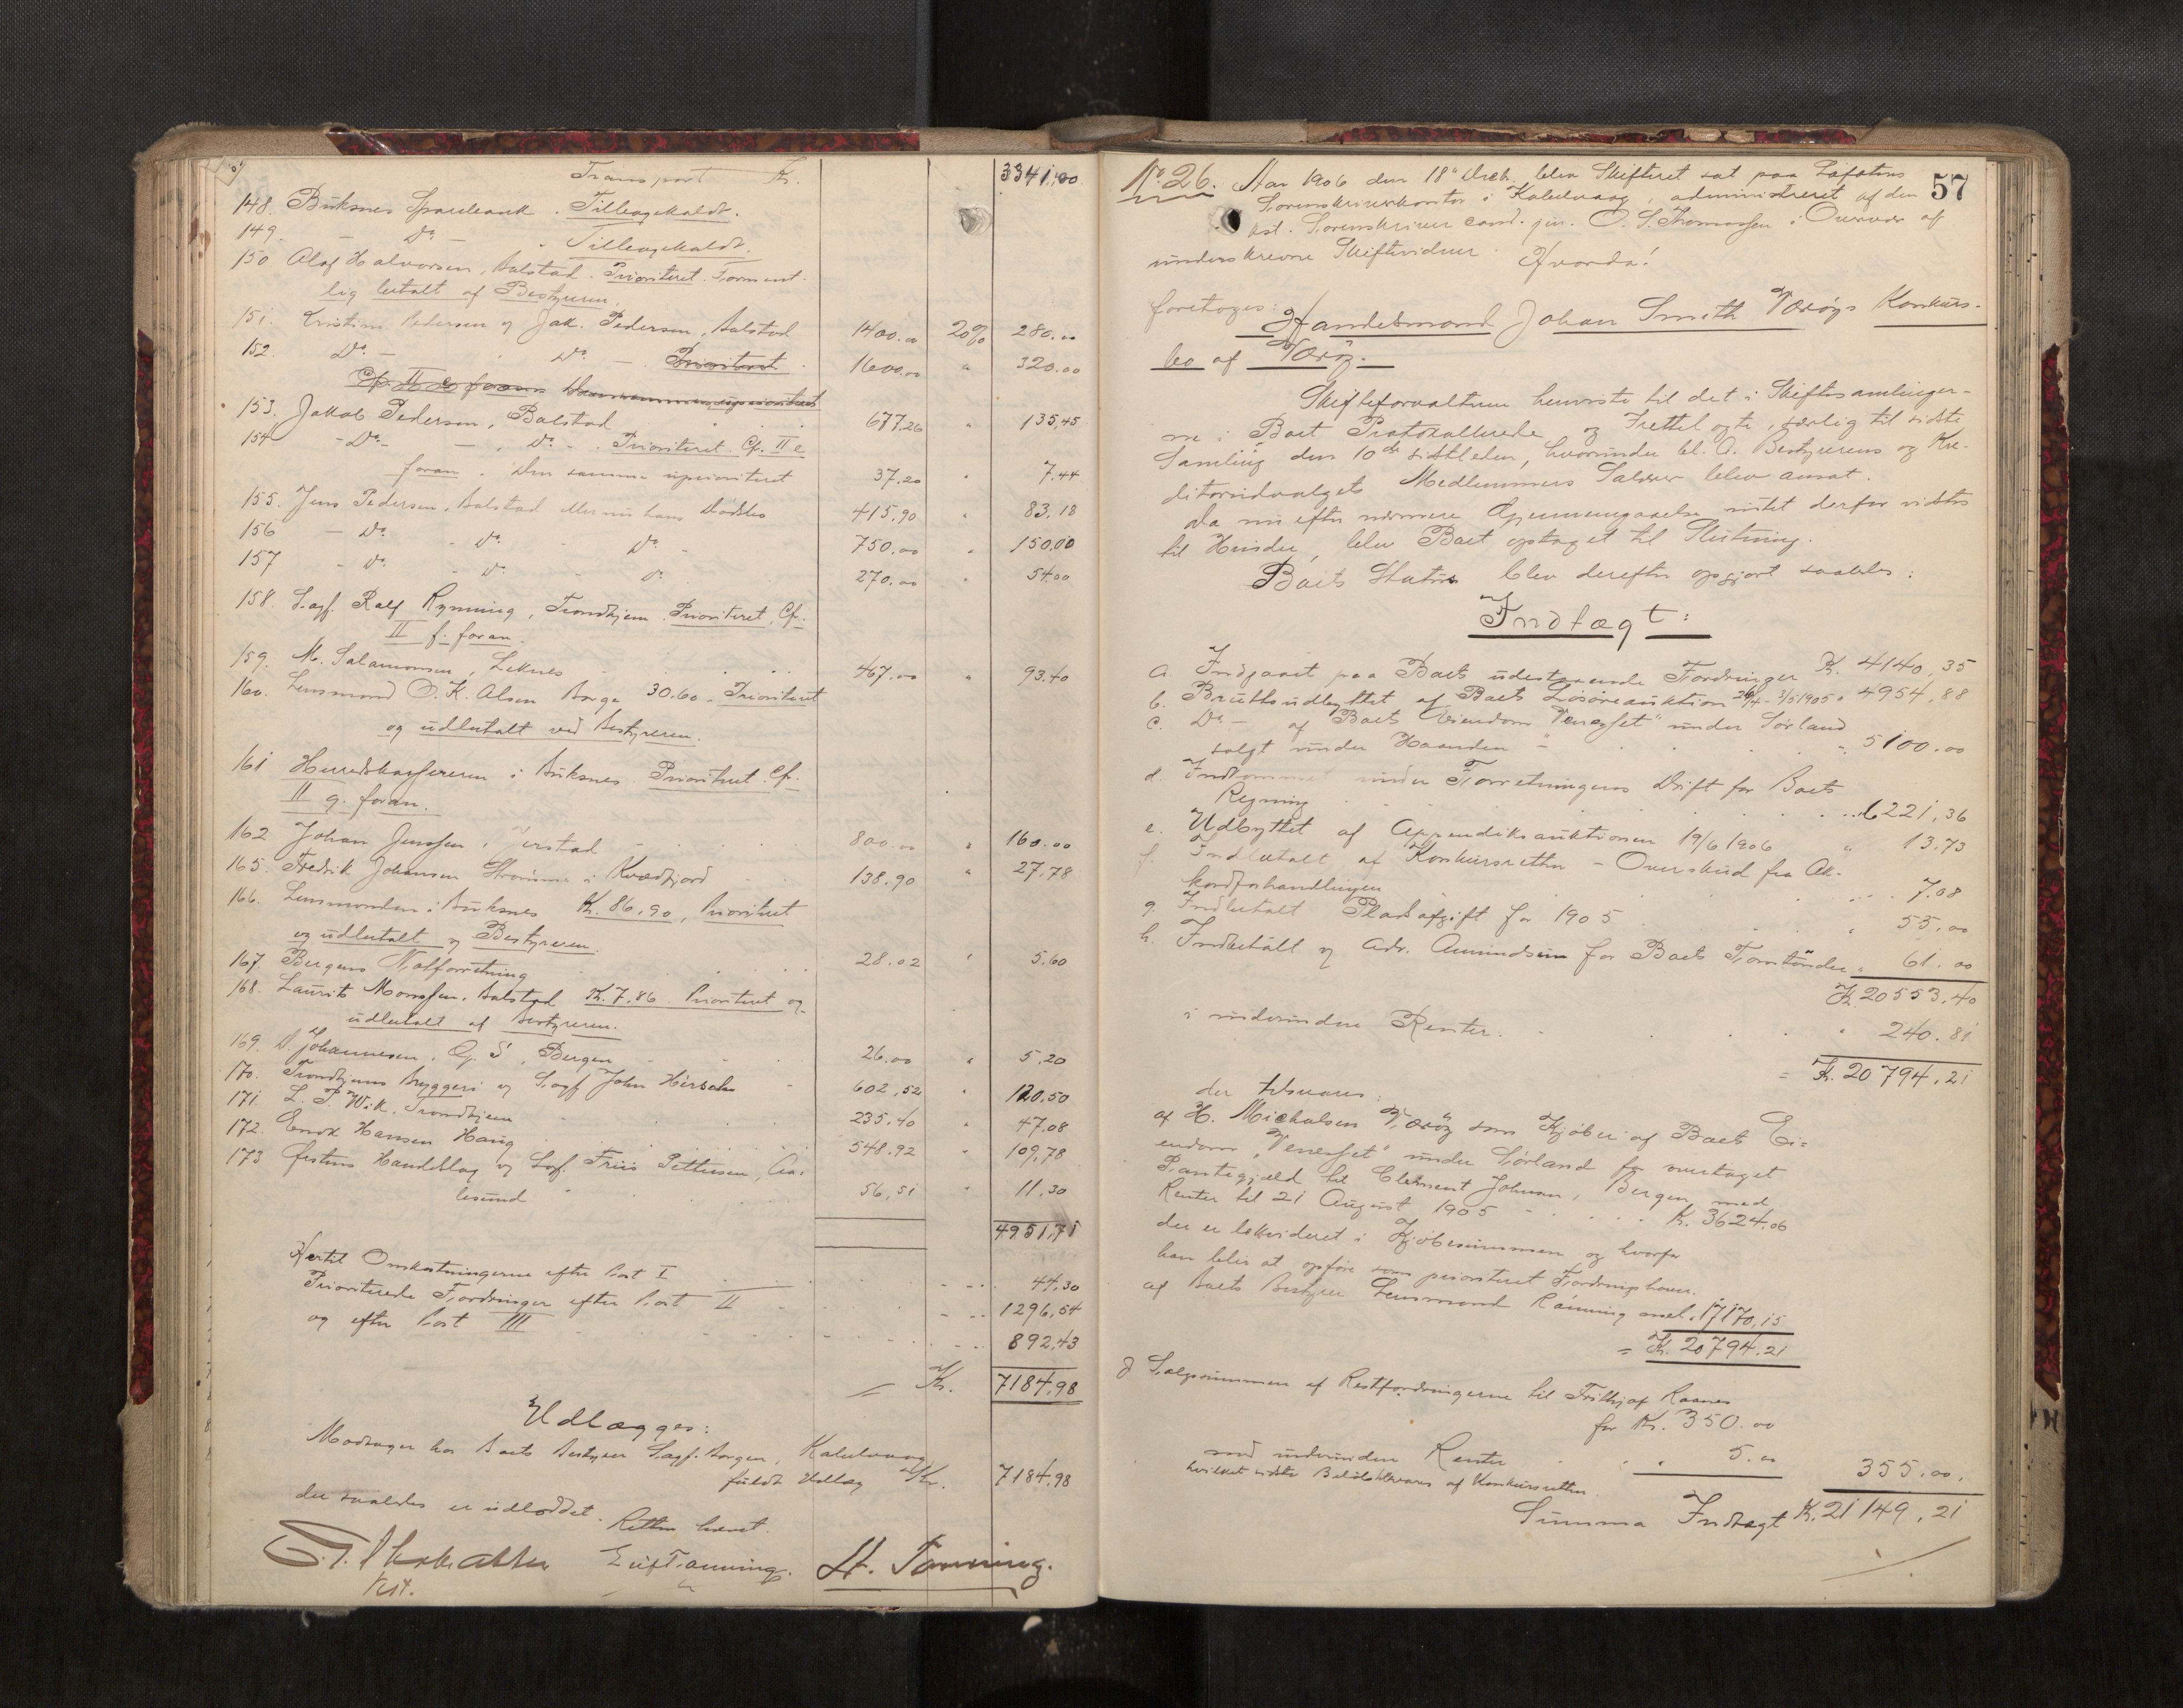 Transport Kr. 3341,00
148. Buksnes Sparebank. Tilbagekaldt.
149. - Do - . Tilbagekaldt.
150 Olaf Halvorsen, Balstad. Prioriteret. Forment-
lig betalt af Bestyreren.
151. Kristine Pedersen og Jak. Pedersen, Balstad 1400.00 20% 280.00
152. Do - Do - Prioriteret. 1600.00 " 320.00
Cfr. II foran
153. Jakob Pedersen, Balstad 677,26 " 135,45
154 - Do - , Do - . Prioriteret. Cfr. II e
foran. Den samme uprioriteret 37,20 " 7.44
155. Jens Pedersen, Balstad eller nu hans Dødsbo 415,90 " 83.18
156 - Do. - Do. - Do. - 750.00 " 150.00
157 - Do. - Do. - Do. 270.00 " 54.00
158. Sagf. Ralf Rynning, Trondhjem. Prioriteret, Cfr.
II f. foran.
159. M. Salamonsen, Leknes 467.00 " 93.40
160. Lensmand O. K. Olsen Borge 30.60. Prioriteret
og udbetalt ved Bestyreren.
161 Herredskassereren i Buksnes. Prioriteret. Cfr.
II g. foran.
162 Johan Jenssen, 800.00 " 160.00
165. Fredrik Johansen i Kvædfjord 138.90 " 27.78
166. Lensmanden i Buksnes Kr. 86.90, Prioriteret
og udbetalt af Bestyreren.
167. Bergens Notforretning 28.02 " 5.60
168. Laurits Monssen, Balstad Kr. 7.86. Prioriteret og
udbetalt af Bestyreren.
169. D. Johannesen, Bergen 26.00 " 5.20
170. Trondhjems Bryggeri v/ Sagf. John Hirsch 602,52 " 120.50
171. L. P. Wik. Trondhjem 235.40 " 47.08
172. Enok Hansen Haug 548.92 " 109,78
173 Østens Handelslag v/ Sagf. Friis Pettersen, Aa-
lesund 56,51 " 11.30
4951,71
Hertil Omkostningerne efter Post I 44.30
Prioriterede Fordringer efter Post II 1296,54
og efter Post III 892.43
Kr. 7184.98
Udlægges:
Modtager hos Boets Bestyrer Sagf. Borgen, Kabelvaag
fuldt Udlæg Kr. 7184.98
der saaledes er udloddet. Retten hævet.
H. Tønning.
57
No. 26. Aar 1906 den 18de Decb. blev Skifteret sat paa Lofotens
Sorenskriverkontor i Kabelvaag, administreret af den
kst. Sorenskriver cand. jur. O. S. Thomassen i Overvær af
underskrevne Skiftevidner. Hvorda!
foretoges:
Handelsmand Johan Smith Værøys Konkurs-
bo af Værøy.
Skifteforvalteren henviste til det i Skiftesamlinger-
ne i Boet Protokollerede og Fremlagte, særlig til sidste
Samling den 10de sidstleden, hvorunder bl. A. Bestyrerens og Kre-
ditorudvalgets Medlemmers Salærer blev ansat.
Da nu efter nærmere Gjennemgaaelse intet derfor vidstes
til Hinder, blev Boet optaget til Slutning.
Boets Status blev derefter opgjort saaledes:
Indtægt:
a. Indgaaet paa Boets udestaaende Fordringer Kr. 4140,35
b. Bruttoudbyttet af Boets Løsøreauktion 26/4 - 3/5 1905 " 4954,88
c. Do - af Boets Eiendom "Veneset" under Sørland
solgt under Haanden " 5100.00
d. Indkommet under Forretningens Drift for Boets
Regning 6221,36
e. Udbyttet af Appendiksauktionen 19/6 1906 " 13.73
f. Indbetalt af Konkursretten - Overskud fra Ak-
kordforhandlingen 7.08
g. Indbetalt Pladsafgift for 1905 " 55.00
h. Indbetalt v/ Adv. Amundsen for Boets Tomtønder " 61.00
Kr. 20553.40
i underindne Renter " 240.81
= Kr. 20794.21
der tilsvares:
af H. Mickalsen Værøy som Kjøber af Boets Ei-
endom "Veneset" under Sørland for overtaget
Pantegjæld til Clement Johnsen, Bergen, med
Renter til 21 August 1905 Kr. 3624.06
der er likvideret i Kjøbesummen og hvorfor
han blir at opføre som prioriteret Fordringshaver.
af Boets Bestyrer Lensmand Rønning 17170,15
= Kr. 20794.21
Salgssummen af Restfordringerne til Fritjof Raanes
for Kr. 350.00
med underindne Renter 5.00 355.00.
hvilket sidste Beløb tilsvares af Konkursretten.
Summa Indtægt Kr. 21149.21